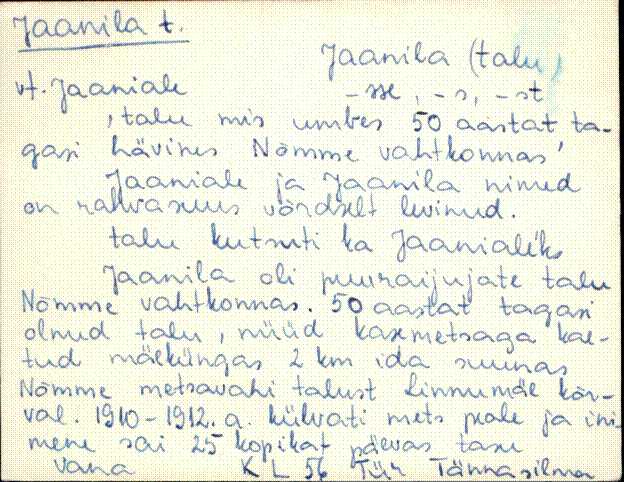 Jaanila t.
Jaanila (talu)
vt. Jaaniale
-sse, -s, -st
, talu mis umbes 50 aastat ta-
gasi hävines Nõmme vahtkonnas'
Jaaniale ja Jaanila nimed
on rahvasuus võrdselt levinud.
talu kutsuti ka Jaanialèks
Jaanila oli puuraijujate talu
Nõmme vahtkonnas. 50 aastat tagasi
olnud talu, nüüd kasemetsaga kae-
tud mäeküngas 2 km ida suunas
Nõmme metsavahi talust Linnumäe kõr-
val. 1910-1912. a. külvati mets peale ja ini-
mene sai 25 kopikat päevas tasu
vana KL 56 Tür Tännasilma